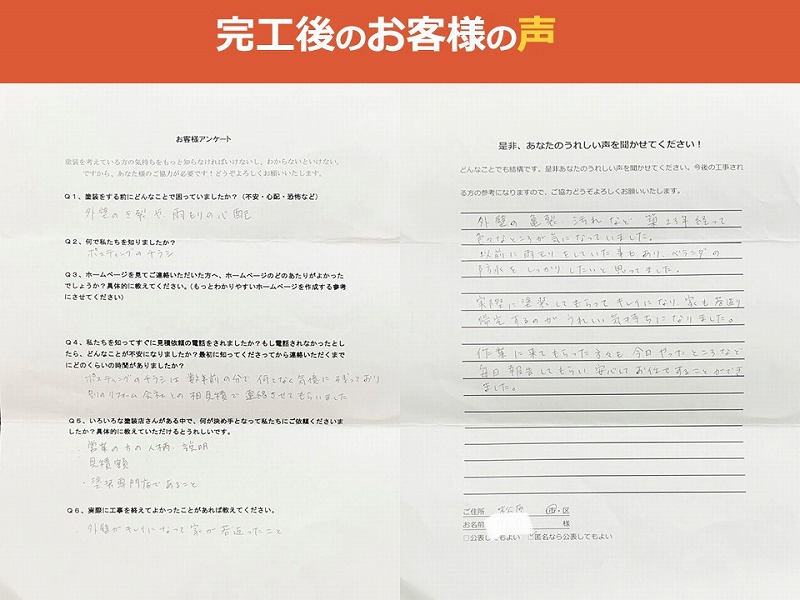 完工後のお客様の声
お客様アンケート
塗装を考えている方の気持ちをもっと知らなければいけないし、わからないといけない。
ですから、あなた様のご協力が必要です！どうぞよろしくお願いいたします。
Q１、塗装をする前にどんなことで困っていましたか？（不安・心配・恐怖など）
外壁の亀裂や雨もりの心配
Q２、何で私たちを知りましたか？
ポスティングのチラシ
Q３、ホームページを見てご連絡いただいた方へ、ホームページのどのあたりがよかった
でしょうか？具体的に教えてください。（もっとわかりやすいホームページを作成する参考
にさせてください）
Q４、私たちを知ってすぐに見積依頼の電話をされましたか？もし電話されなかったとし
たら、どんなことが不安になりましたか？最初に知ってくださってから連絡いただくまで
にどのくらいの時間がありましたか？
ポスティングのチラシは数年前の分で何となく気後にそまっており
別のリフォーム会社との相見積で連絡させてもらいました
Q５、いろいろな塗装店さんがある中で、何が決め手となって私たちにご依頼くださいま
したか？具体的に教えていただけるとうれしいです。
・営業の方の人柄、説明
・見積額
・塗装専門店であること
Q６、実際に工事を終えてよかったことがあれば教えてください。
・外壁がキレイになって家が若返ったこと
是非、あなたのうれしい声を聞かせてください！
どんなことでも結構です。是非あなたのうれしい声を聞かせてください。今後の工事され
る方の参考になりますので、ご協力どうぞよろしくお願いいたします。
外壁の亀裂 汚れなど 築23年経って
色々なところが気になっていました。
以前に雨もりをしていた事もあり、ベランダの
防水をしっかりしたいと思ってました。
実際に塗装してもらってキレイになり、家も若返り
帰宅するのがうれしい気持ちになりました。
作業に来てもらった方々も今日やったところなど
毎日報告してもらい、安心してお任せすることができ
ました。
ご住所 松原 市・区
お名前 様
□公表してもよい □匿名なら公表してもよい